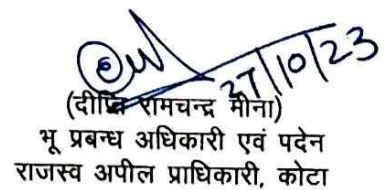 27/10/23
(दीप्ति रामचन्द्र मीना)
भू प्रबन्ध अधिकारी एवं पदेन
राजस्व अपील प्राधिकारी, कोटा